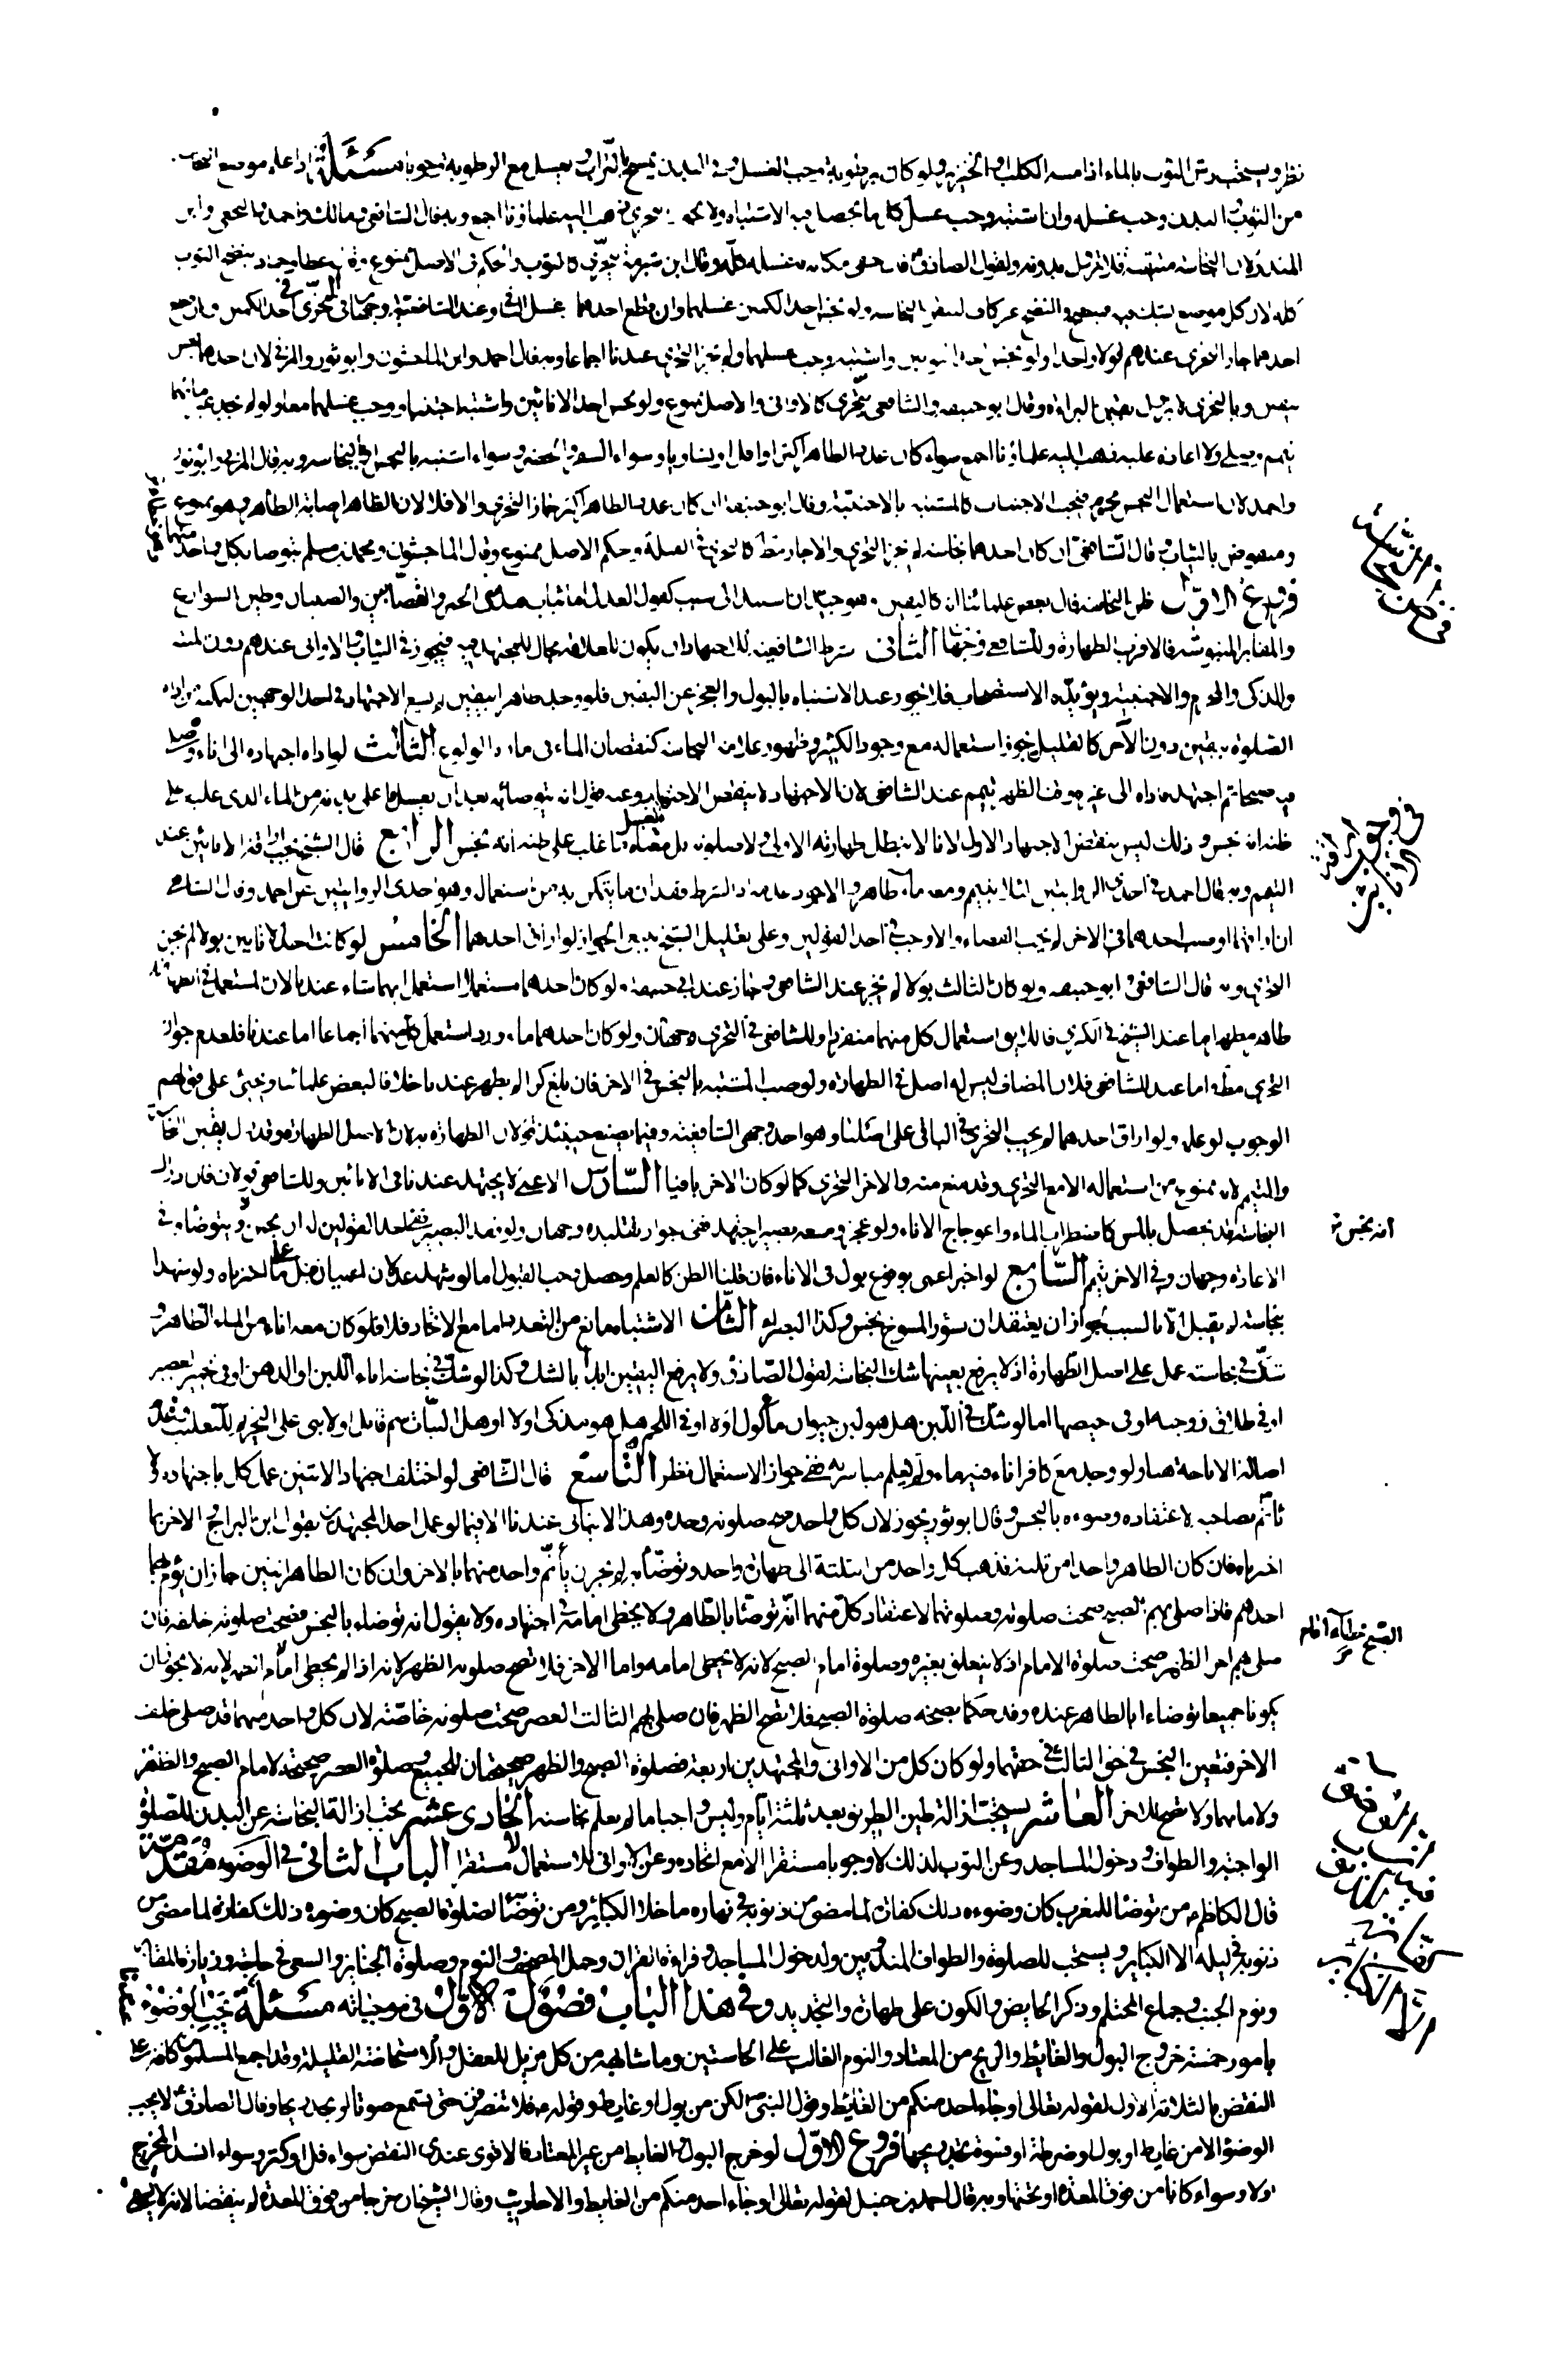 نظر ويستحب رش الثوب بالماء اذا مسه الكلب والخنزير ولو كان برطوبة وجب الغسل وفى البدن يمسح بالتراب ويغسل مع الرطوبة وجوبا مسئلة اذا علم موضع النجاسة
من الثوب البدن وجب غسله وان اشتبه وجب غسل كل ما يحصل فيه الاشتباه ولا يجوز التحرى ذهب اليه علماؤنا اجمع وبه قال الشافعى ومالك واحمد والنخعى وابن
المنذر لان النجاسة متيقنة فلا تزول بدونه ولقول الصادق فان خفى مكانه فاغسله كله وقال ابن شبرمة يتحرى كالثوبين وحكم الاصل ممنوع وقال عطا وحماد ينضح الثوب
كله لان كل موضع يشك فيه فينضح والنضح غير كاف لتيقن النجاسة ولو نجس احد الكمين غسلهما وان قطع احدهما غسل الباقى وعند الشافعية وجهان فى التحرى فى احد الكمين
احدهما جاز التحرى عندهم لولا واحدا ولو نجس احد الثوبين واشتبه وجب غسلهما ولم يجز التحرى عندنا اجماعا وبه قال احمد وابن الماجشون وابو ثور والمزنى لان احدهما نجس
بيقين وبالتحرى لا يحصل يقين البراءة وقال ابو حنيفة والشافعى يتحرى كالاوانى والاصل ممنوع ولو نجس احد الانائين واشتبه اجتنبا ووجب غسلهما معا ولو لم يجد غير مائهما
تيمم وصلى ولا اعادة عليه ذهب اليه علماؤنا اجمع سواء كان عدد الطاهر اكثر او اقل او تساويا وسواء السفر والحضر وسواء اشتبه بالنجس او بالنجاسة وبه قال المزنى وابو ثور
واحمد لان استعمال النجس محرم فيجب الاجتناب كالمشتبه بالاجنبية وقال ابو حنيفة ان كان عدد الطاهر اكثر جاز التحرى والا فلا لان الظاهر اصابة الطاهر وهو ممنوع
ومنقوض بالثياب وقال الشافعى ان كان احدهما نجاسة لم يجز التحرى والا جاز مطلقا كالتحرى فى القبلة وحكم الاصل ممنوع وقال الماجشون ومحمد بن مسلم يتوضأ بكل واحد منهما
فروع الاول ظن النجاسة قال بعض علمائنا انه كاليقين وهو جيد ان استند الى سبب كقول العدل اما ثياب مدمنى الخمر والقصابين والصبيان وطين الشوارع
والمقابر المنبوشة فالاقرب الطهارة وللشافعى وجهان الثانى شرط الشافعية للاجتهاد ان يكون للعلامة مجال للمجتهد فيه فيجوز فى الثياب والاوانى عندهم دون الميتة
والمذكى والمحرم والاجنبية ويؤيده الاستصحاب فلا يجوز عند الاشتباه بالبول والعجز عن اليقين فلو وجد طاهرا بيقين لم يسع الاجتهاد فى احد الوجهين لتمكنه من اداء
الصلوة بيقين دون الآخر كالقليل يجوز استعماله مع وجود الكثير وظهور علامة النجاسة كنقصان الماء فى امارة الولوغ الثالث لو اداه اجتهاده الى اناء وصلى
فيه صبحا ثم اجتهد فاداه الى غيره وقت الظهر تيمم عند الشافعى لان الاجتهاد لا ينقض الاجتهاد وعنه قول انه يتوضأ به بعد ان يغسل ما على بدنه من الماء الذى غلب على
ظنه انه نجس وذلك ليس بنقض الاجتهاد الاول لانا لا نبطل طهارته الاولى ولا صلوته بل معناه يغسل ما غلب على ظنه انه نجس الرابع قال الشيخ يجب اراقة الانائين عند
التيمم وبه قال احمد فى احدى الروايتين لئلا يتيمم ومعه ماء طاهر والاجود عدمه اذ الشرط فقدان ما يتمكن به من استعمال وهو احدى الروايتين عن احمد وقال الشافعى
ان اراقهما او صب احدهما فى الآخر لم يجب القضاء والا وجب فى احد القولين وعلى تعليل الشيخ ينبغى الجواز لو اراق احدهما الخامس لو كانت احد الانائين بولا لم يجز
التحرى وبه قال الشافعى وابو حنيفة ولو كان الثالث بولا لم يجز عند الشافعى وجاز عند ابى حنيفة ولو كان احدهما مستعملا استعمل ايهما شاء عندنا لان المستعمل فى الطهارة
طاهر مطهر اما عند الشيخ فى الكبرى فاللايق استعمال كل منهما منفردا وللشافعى فى التحرى وجهان ولو كان احدهما ماء ورد استعمل كل منهما اجماعا اما عندنا فلعدم جواز
التحرى مطلقا اما عند الشافعى فلان المضاف ليس له اصل فى الطهارة ولو صب المشتبه بالنجس فى الآخر فان بلغ كرا لم يطهر عندنا خلافا لبعض علمائنا ويجئ على قولهم
الوجوب لو علم ولو اراق احدهما لم يجب التحرى فى الباقى على اصلنا وهو احد وجهى الشافعية وفيما يصنع حينئذ قولان الطهارة به لان الاصل الطهارة وقد زال يقين النجاسة
والتيمم لانه ممنوع من استعماله الا مع التحرى وقد منع منه والآخر التحرى كما لو كان الآخر باقيا السادس الاعمى لا يجتهد عندنا فى الانائين وللشافعى قولان فان ادراك
النجاسة قد يحصل بالمس كاضطراب الماء واعوجاج الاناء ولو عجز ومعه بصير اجتهد ففى جواز تقليده وجهان ولو فقد البصير ففى احد القولين له ان يخمن ويتوضأ وفى
الاعادة وجهان وفى الآخر يتيمم السابع لو اخبر اعمى بوقوع بول فى الاناء فان قلنا الظن كالعلم وحصل وجب القبول اما لو شهد عدلان اعميان قبل على ما اخترناه ولو شهدا
بنجاسته لم يقبل الا بالسبب لجواز ان يعتقدا ان سؤر المسوخ نجس وكذا البصير الثامن الاشتباه مانع من التعدد اما مع الاتحاد فلا فلو كان معه اناء من الماء الطاهر و
شك فى نجاسته عمل على اصل الطهارة اذ لا يرفع يقينها شك النجاسة لقول الصادق ولا يرفع اليقين ابدا بالشك وكذا لو شك فى نجاسة اناء اللبن او الدهن او فى تخمير العصير
او فى طلاق زوجته او فى حيضها اما لو شك فى اللبن هل هو لبن حيوان مأكول او لا او فى اللحم هل هو مذكى او لا او هل النبات سم قاتل او لا بنى على التحريم للتغليب وفقد
اصالة الاباحة هنا ولو وجد مع كافر اناء فيه ماء ولم يعلم مباشرته ففى جواز الاستعمال نظر التاسع قال الشافعى لو اختلف اجتهاد الاثنين عمل كل باجتهاده ولا
يأتم بصاحبه لاعتقاده وضوءه بالنجس وقال ابو ثور يجوز لان كل واحد تصح صلوته وحده وهذا لا يتأتى عندنا الا فيما لو عمل احد المجتهدين بقول ابن البراج والآخر بما
اخترناه فان كان الطاهر واحدا من ثلثة فذهب كل واحد من الثلثة الى طهارة واحد وتوضأ به لم يجز ان يأتم واحد منهما بالآخر وان كان الطاهر اثنين جاز ان يؤم بهما
احدهم فاذا صلى بهم الصبح صحت صلوته وصلوتهما لاعتقاد كل منهما انه توضأ بالطاهر ولا يخطى امامه فى اجتهاده ولا يقول انه توضاء بالنجس فصحت صلوته خلفه فان
صلى بهم آخر الظهر صحت صلوة الامام اذ لا يتعلق بغيره وصلوة امام الصبح لانه لا يخطى امامه واما الآخر فلا تصح صلوته الظهر لانه اذا لم يخطى امام الصبح لانه لا يجوز ان
يكونا جميعا توضاءا بالطاهر عنده وقد حكما بصحة صلوة الصبح فلا تصح الظهر فان صلى بهم الثالث العصر صحت صلوته خاصة لان كل واحد منهما قد صلى خلف
الآخر فتعين النجس فى حق الثالث فى حقهما ولو كان كل من الاوانى والمجتهدين اربعة فصلوة الصبح والظهر صحيحتان للجميع وصلوة العصر صحيحة لامام الصبح والظهر
ولامامها ولا تصح للآخر العاشر يستحب ازالة طين الطريق بعد ثلثة ايام وليس واجبا ما لم يعلم نجاسته الحادى عشر يجب ازالة النجاسة عن البدن للصلوة
الواجبة والطواف ودخول المساجد وعن الثوب لذلك لا وجوبا مستقرا الا مع اتحاده وعن الاوانى للاستعمال لا مستقرا الباب الثانى فى الوضوء مقدمة
قال الكاظم من توضأ للمغرب كان وضوءه ذلك كفارة لما مضى من ذنوبه فى نهاره ما خلا الكبائر ومن توضأ لصلوة الصبح كان وضوءه ذلك كفارة لما مضى من
ذنوبه فى ليله الا الكبائر ويستحب للصلوة والطواف المندوبين ولدخول المساجد وقراءة القران وحمل المصحف والنوم وصلوة الجنايز والسعى فى حاجة وزيارة المقابر
ونوم الجنب وجماع المحتلم وذكر الحايض والكون على طهارة والتجديد وفى هذا الباب فصول الاول فى موجباته مسئلة يجب الوضوء
بامور خمسة خروج البول والغايط والريح من المعتاد والنوم الغالب على الحاستين وما شابهه من كل مزيل للعقل والاستحاضة القليلة وقد اجمع المسلمون كافة على
النقض بالثلاثة الاول لقوله تعالى او جاء احد منكم من الغايط وقول النبى لكن من بول او غايط وقوله فلا تنصرفن حتى تسمع صوتا او تجد ريحا وقال الصادق لا يجب
الوضوء الا من غايط او بول او ضرطة او فسوة تجد ريحها فروع الاول لو خرج البول والغايط من غير المعتاد فالاقوى عندى النقض سواء قل او كثر وسواء انسد المخرج
اولا وسواء كانا من فوق المعدة او تحتها وبه قال احمد بن حنبل لقوله تعالى او جاء احد منكم من الغايط والاحاديث وقال الشيخ ان خرجا من فوق المعدة لم ينقضا لانه لا يسمى
انه نجس